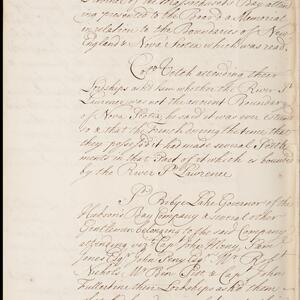 of the Massachusets Bay attend
ing presented to the Board a Memorial
in relation to the Boundaries of New
England & Nova Scotia which was read.
Capt. Vetch attending their
Lordships ask'd him whether the River St.
Laurence was not the ancient Boundary
of Nova Scotia, he said it was ever
so & that the French during the time that
they possess'd it had made several Settle
ments in that Part of it which is bounded
by the River St. Laurence
Sr. Bibye Lake Governor of the
Hudson's Bay Company & several other
Gentlemen belonging to the said Company
attending vizt. Capt. John Merry, Sam.
Jones Esqr. John Esqr. Mr. Robt.
Nichols, Mr. Ben Pitt & Capt. John
Fullartine their Lordships ask'd them